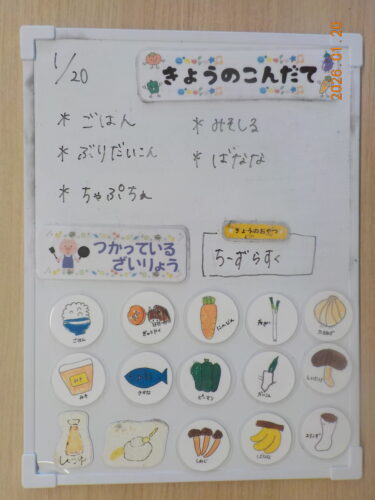 1/20
きょうのこんだて
2026.01.20
* ごはん
* みそしる
* ぶりだいこん
* ばなな
* ちゃぷちぇ
つかっている
ざいりょう
きょうのおやつ
ちーずらすく
ごはん
ぎゅうにく
にんじん
ねぎ
たまねぎ
みそ
さかな
ピーマン
だいこん
しいたけ
しょうゆ
しめじ
ばなな